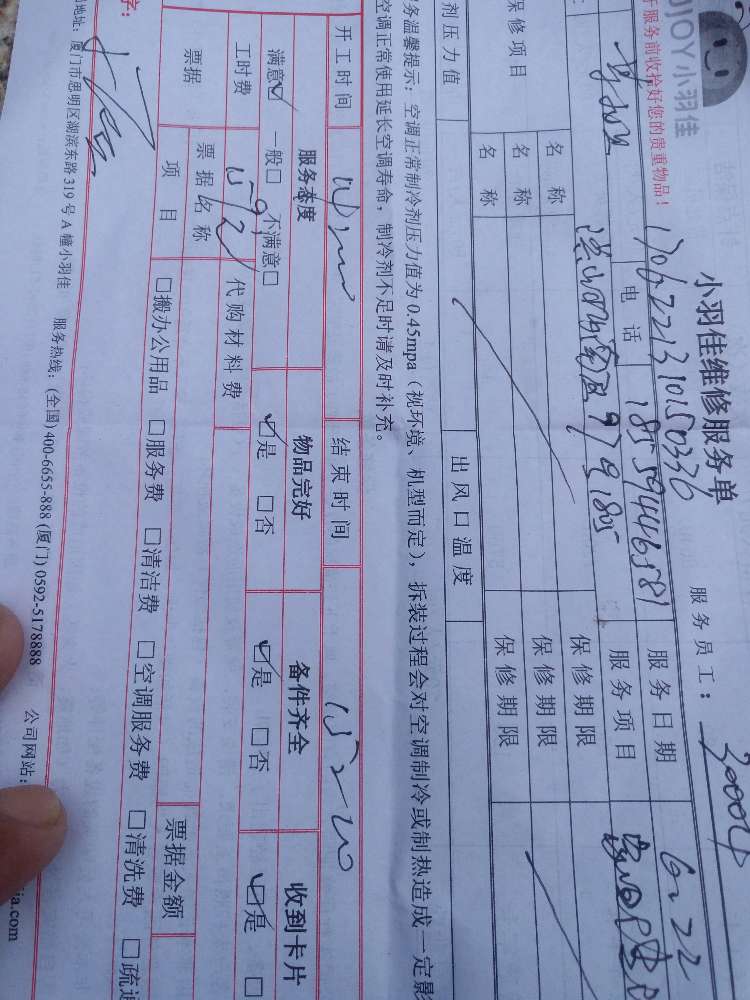 JOY小羽佳
小羽佳维修服务单
服务员工：
服务前收拾好您的贵重物品！
1706221310150336
服务日期
6.22
电话
18559446581
服务项目
979 1805
保修项目
名称
保修期限
名称
保修期限
名称
保修期限
剂压力值
出风口温度
务温馨提示：空调正常制冷剂压力值为0.45mpa（视环境、机型而定），拆装过程会对空调制冷或制热造成一定影
空调正常使用延长空调寿命，制冷剂不足时请及时补充。
开工时间
结束时间
服务态度
物品完好
备件齐全
收到卡片
满意☑ 一般□ 不满意□
☑是 □否
☑是 □否
☑是 □
工时费
代购材料费
票据
票据名称
项目
票据金额
□搬办公用品 □服务费 □清洁费 □空调服务费 □清洗费 □疏通
字：
地址：厦门市思明区湖滨东路319号A幢小羽佳 服务热线：(全国) 400-6655-888 (厦门) 0592-5178888 公司网站：
ia.com